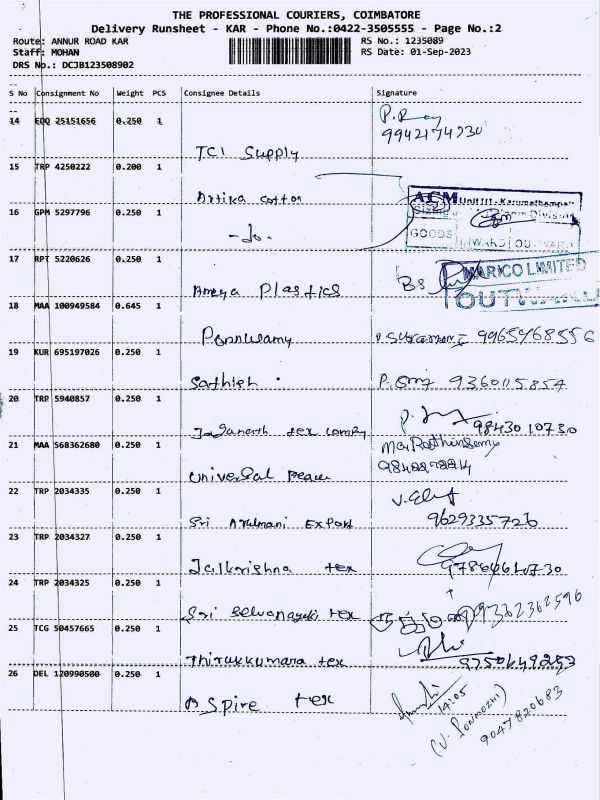 THE PROFESSIONAL COURIERS, COIMBATORE
Delivery Runsheet - KAR - Phone No.:0422-3505555 - Page No.:2
Route: ANNUR ROAD KAR RS No.: 1235089
Staff: MOHAN RS Date: 01-Sep-2023
DRS No.: DCJB123508902
S No Consignment No Weight PCS Consignee Details Signature
14 EDQ 25151656 0.250 1
9942174230
TCI Supply
15 TRP 4250222 0.200 1
Artika cotton
ACM Unit III - Karumathampatti
16 GPM 5297796 0.250 1
Sizing Division
-do-
GOODS INWARD OUTWARD
17 RPT 5220626 0.250 1
MARICO LIMITED
Ameya Plastics
OUTWARD
18 MAA 100949584 0.645 1
Ponnusamy
9965968556
19 KUR 695197026 0.250 1
Sathish
9360115854
20 TRP 5940857 0.250 1
Jaganath tex company
9843010730
21 MAA 568362680 0.250 1
Universal
22 TRP 2034335 0.250 1
Sri Arulmani Export
9629335726
23 TRP 2034327 0.250 1
Jaikrishna tex
24 TRP 2034325 0.250 1
Sri Selvanayaki tex
9362362596
25 TCG 50457665 0.250 1
Thirukkumara tex
26 DEL 120990500 0.250 1
Aspire tex
14:05
(V. PONMOZHI)
9047820683